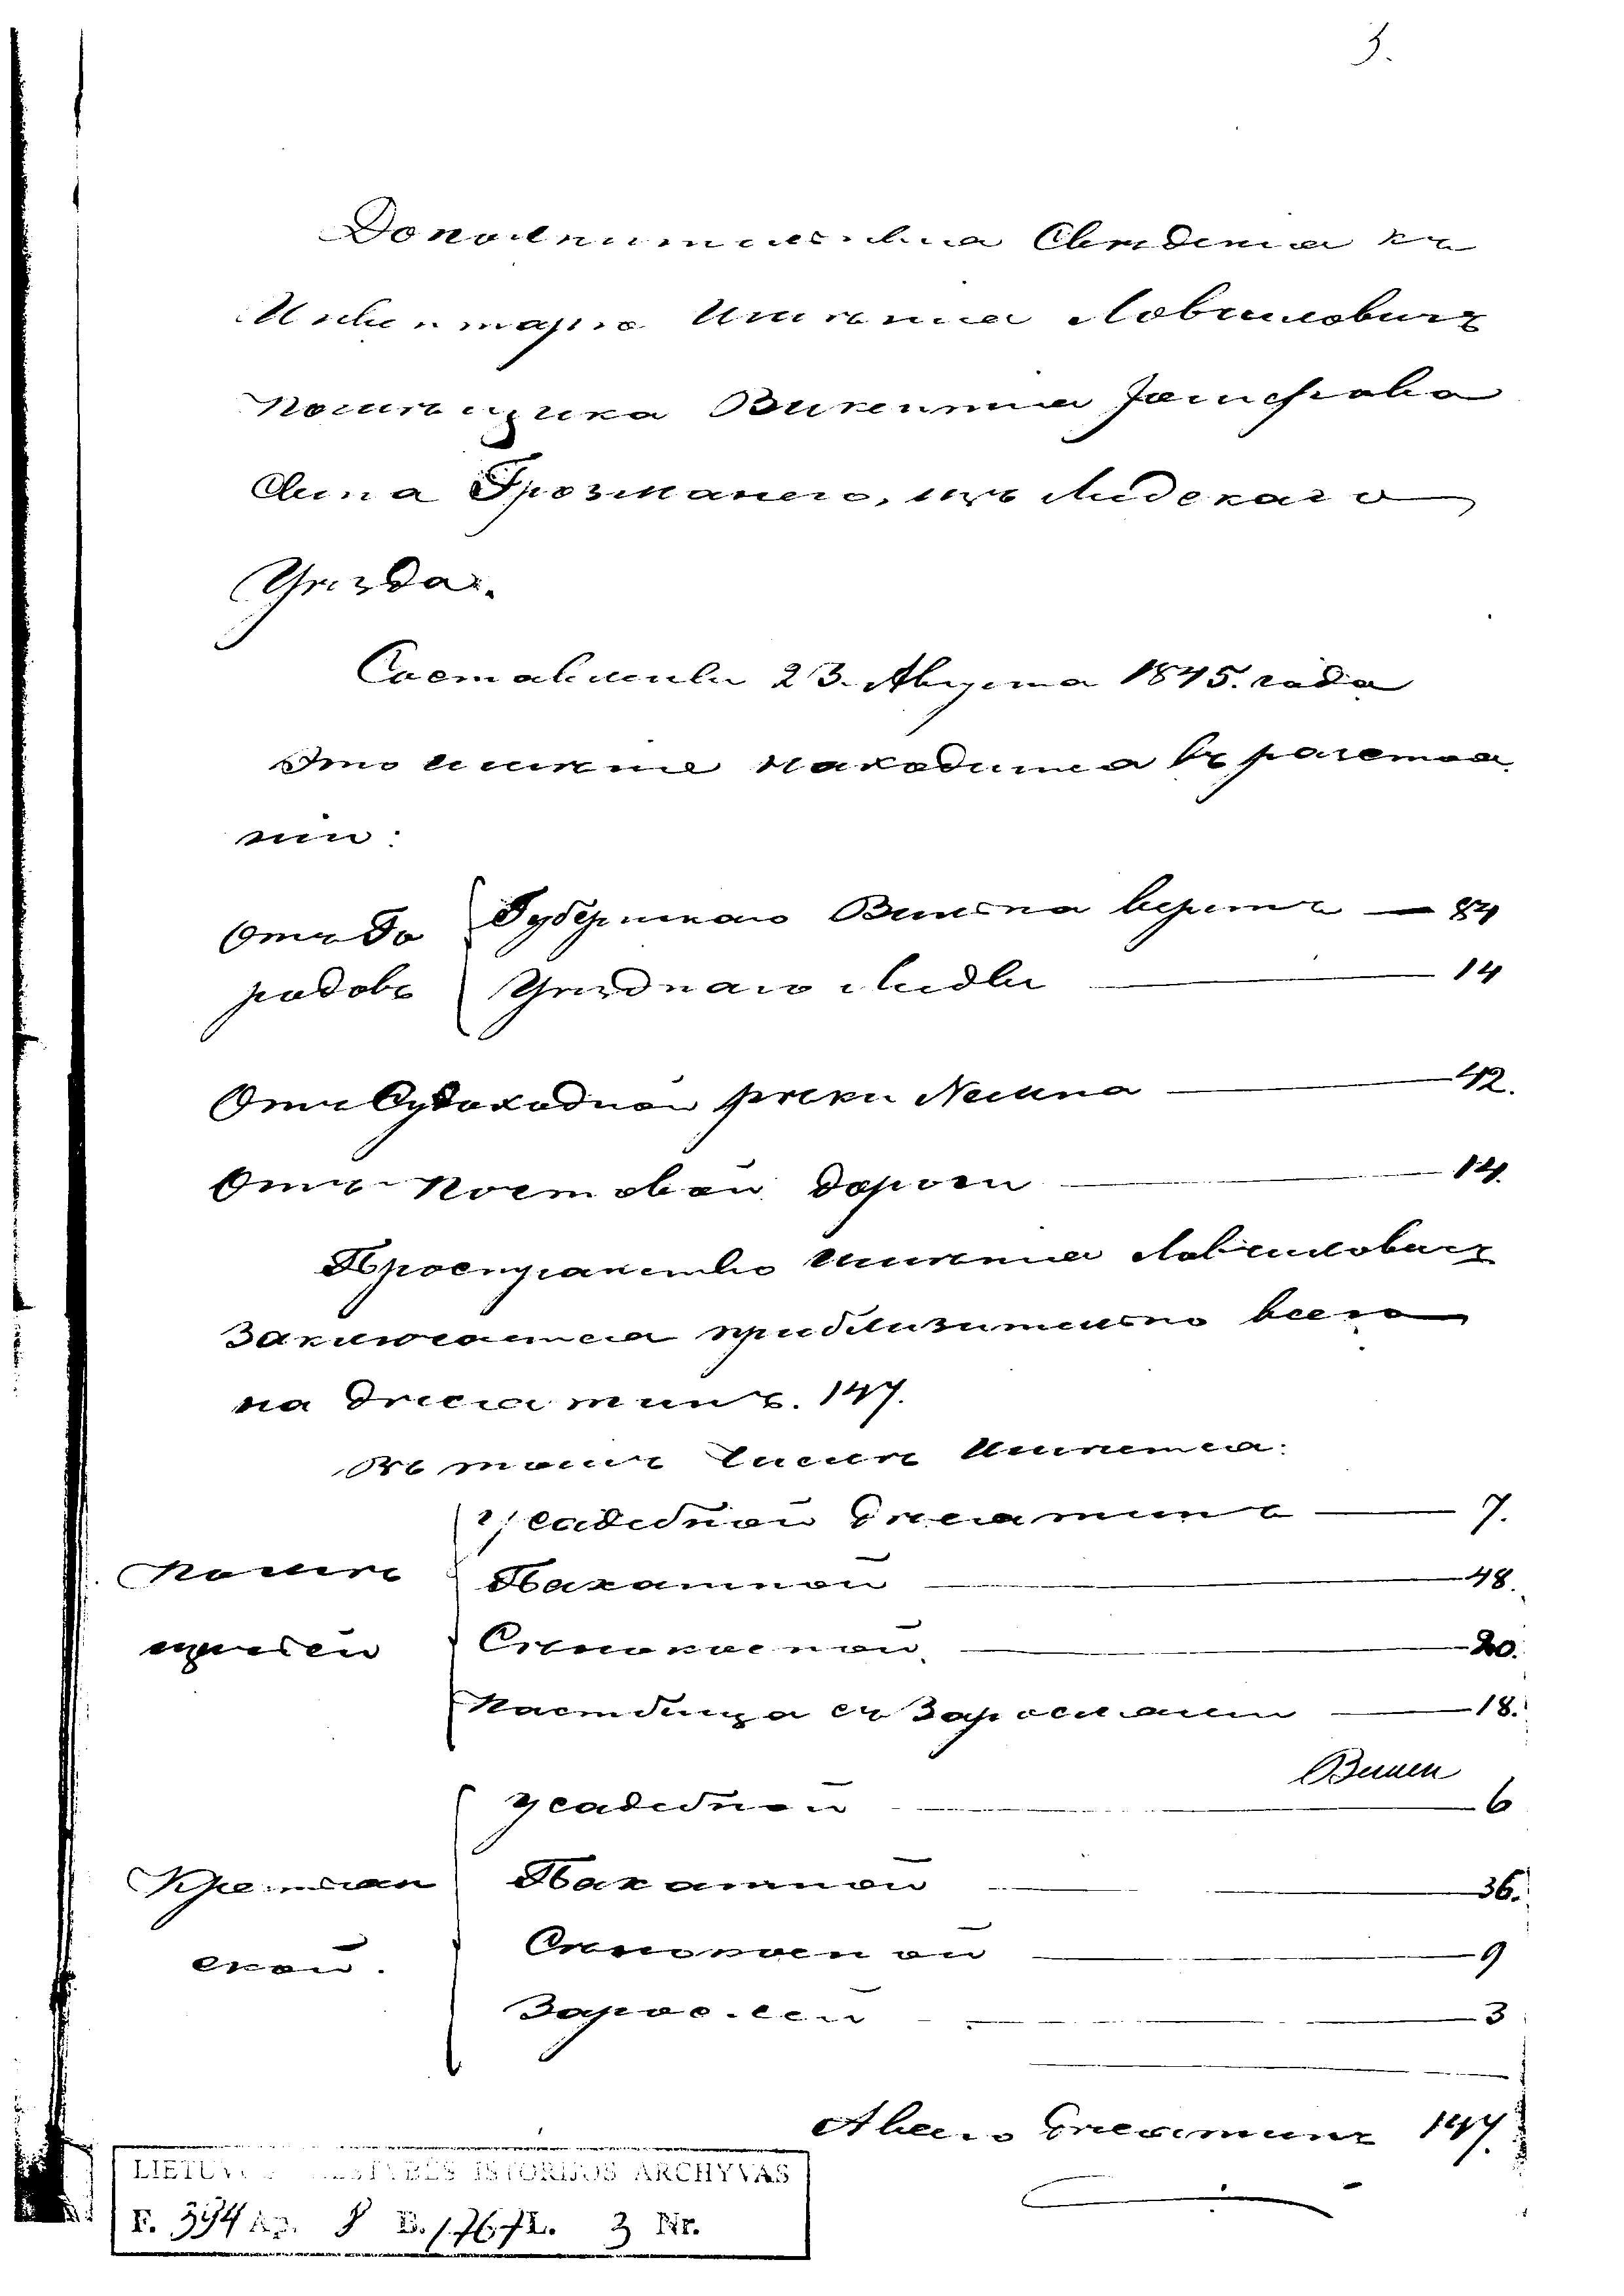 3.
Дополнительныя Сведенія къ
Инвентарю Имѣнія Ловчиловичъ
Помѣщика Викентія
Сына Грозманего, изъ Лидскаго
Уѣзда.
Составлены 23. Августа 1845. года
Это имѣніе находится въ разстоя
ніи:
Отъ го
родовъ
Губернскаго Вильна верстъ — 84
Уѣзднаго Лиды — 14
Отъ Судоходной рѣки Немна — 42.
Отъ Почтовой дороги — 14.
Пространство имѣнія Ловчиловичъ
Заключается приблизительно всего
на десятинъ. 147.
Въ томъ числѣ имѣется:
Помѣ
щичьей
Усадебной десятинъ — 7.
Пахатной — 48.
Сѣнокосной — 20.
Пастбища съ Зарослями — 18.
Усадебной — 6
Крестьян
ской.
Пахатной — 36.
Сѣнокосной — 9
Зарослей — 3
А всего десятинъ 147.
LIETUVOS VALSTYBĖS ISTORIJOS ARCHYVAS
F. 394 Ap. 8 B. 1767 L. 3 Nr.